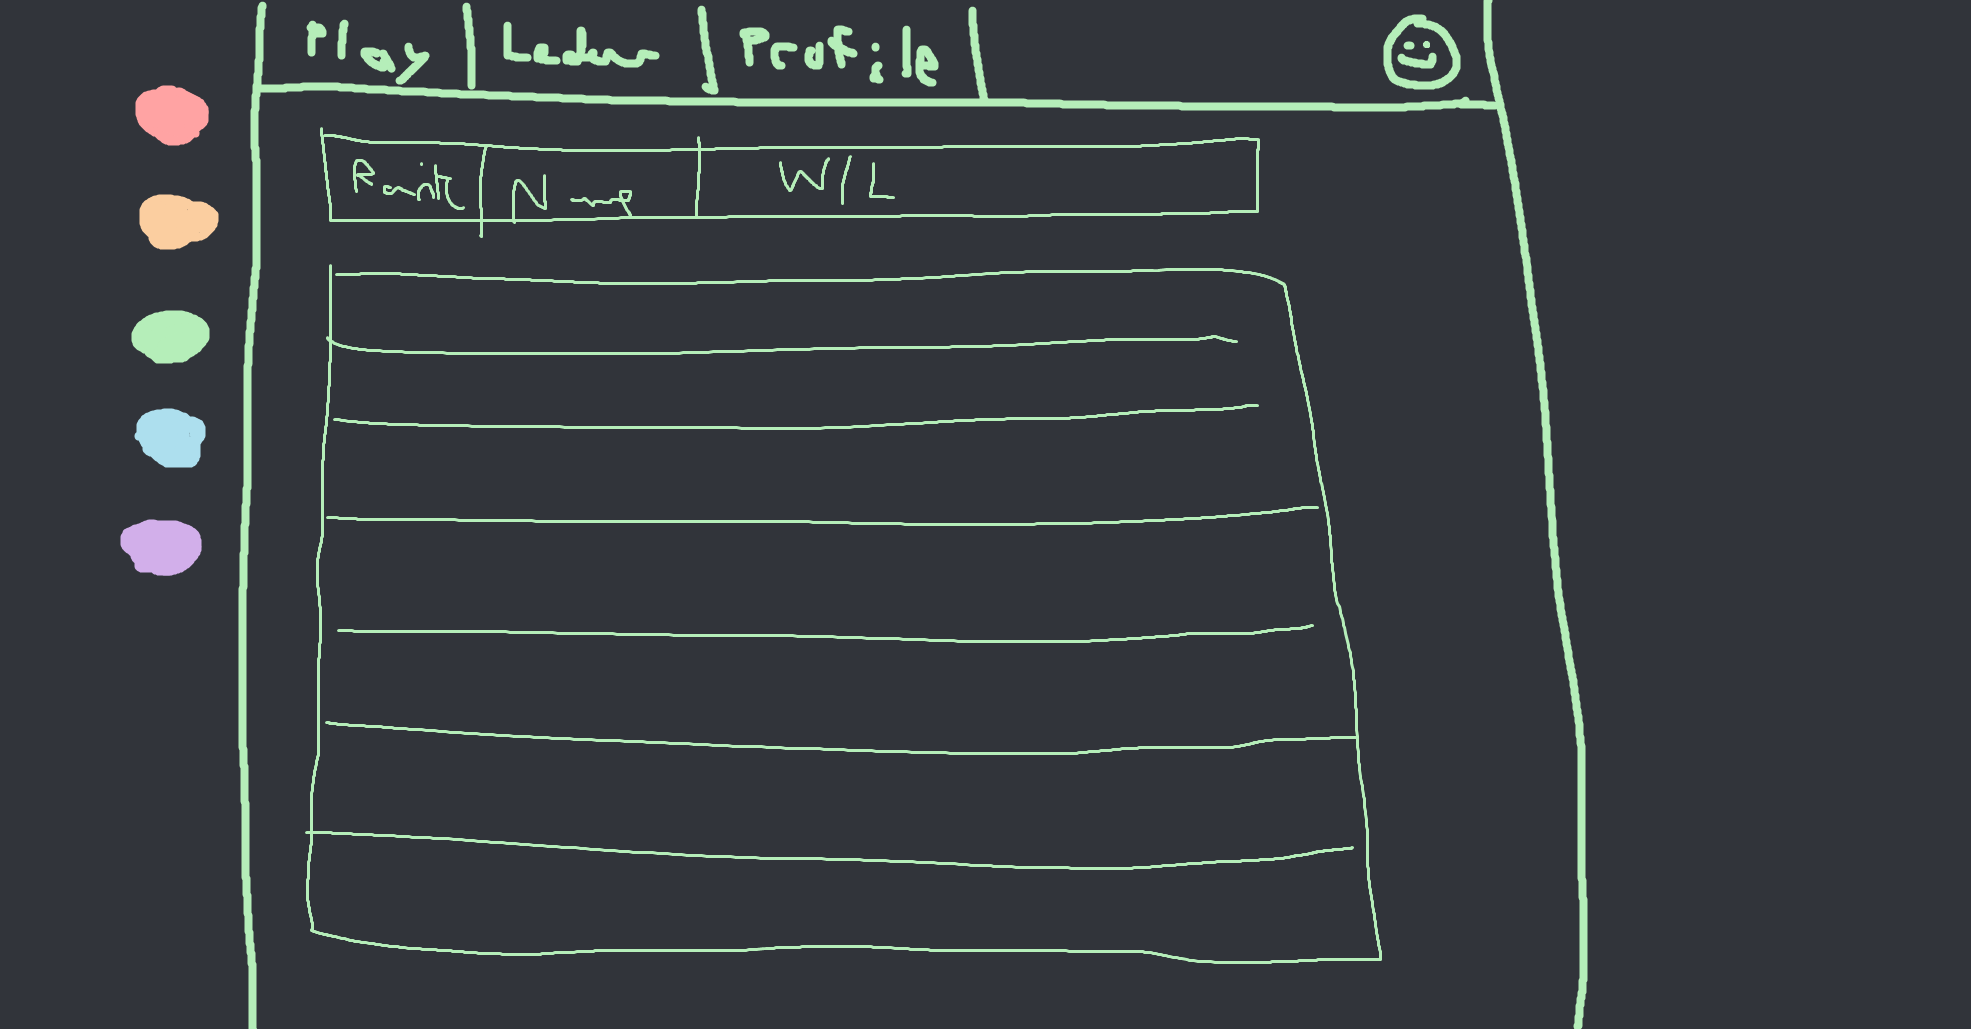 Play Leader Profile
Rank Name W/L